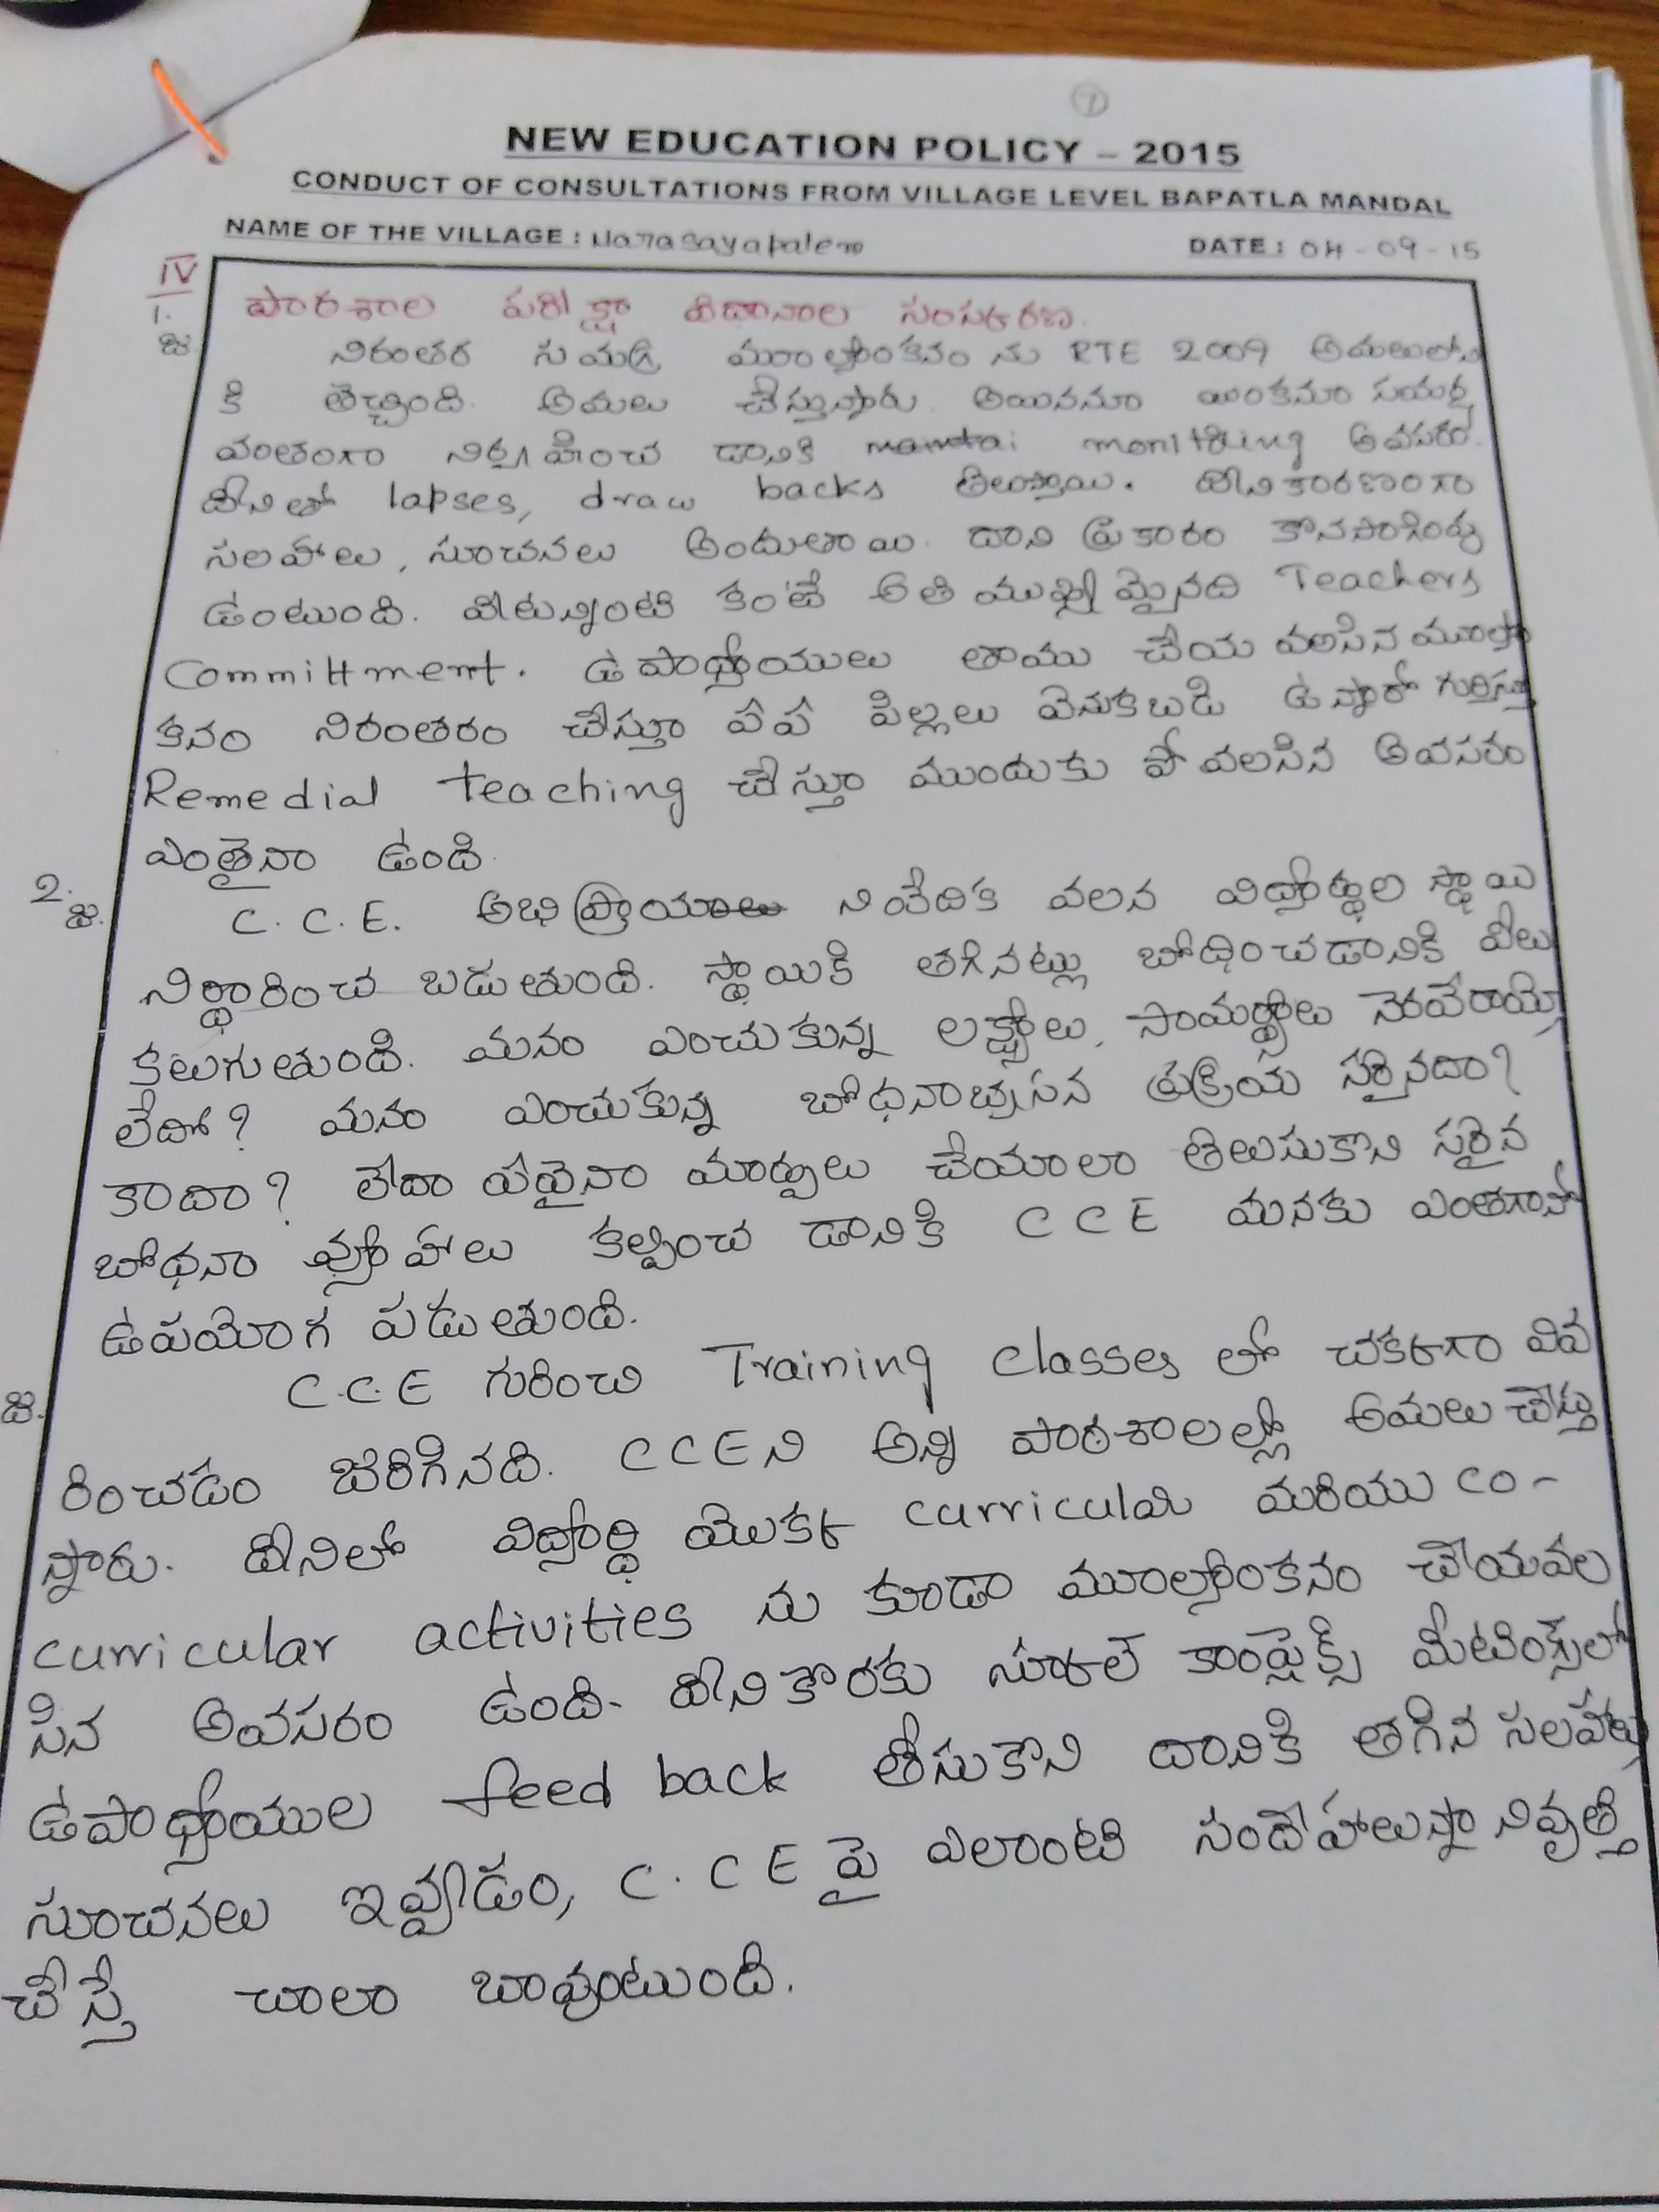 7
NEW EDUCATION POLICY – 2015
CONDUCT OF CONSULTATIONS FROM VILLAGE LEVEL BAPATLA MANDAL
NAME OF THE VILLAGE : Narasayapalem DATE : 04 - 09 - 15
IV
1. పాఠశాల పరీక్షా విధానాల సంస్కరణ.
జ. నిరంతర సమగ్ర మూల్యాంకనం ను RTE 2009 అమలులో
కి తెచ్చింది. అమలు చేస్తున్నారు. అయిననూ యింకనూ సమర్థ
వంతంగా నిర్వహించ డానికి monitoring అవసరం.
దీనితో lapses, draw backs తెలుస్తాయి. దీని కారణంగా
సలహాలు, సూచనలు అందుతాయి. దాని ప్రకారం కొనసాగింపు
ఉంటుంది. వీటన్నింటి కంటే అతి ముఖ్యమైనది Teachers
Committment. ఉపాధ్యాయులు తాము చేయ వలసిన మూల్యా
కనం నిరంతరం చేస్తూ ఏఏ పిల్లలు వెనుకబడి ఉన్నారో గుర్తిస్తూ
Remedial teaching చేస్తూ ముందుకు పోవలసిన అవసరం
ఎంతైనా ఉంది.
2. జ. C.C.E. అభిప్రాయ నివేదిక వలన విద్యార్థుల స్థాయి
నిర్థారించ బడుతుంది. స్థాయికి తగినట్లు బోధించడానికి వీలు
కలుగుతుంది. మనం ఎంచుకున్న లక్ష్యాలు, సామర్థ్యాలు నెరవేరాయో
లేదో? మనం ఎంచుకున్న బోధనాభ్యసన ప్రక్రియ సరైనదా?
కాదా? లేదా ఏవైనా మార్పులు చేయాలా తెలుసుకొని సరైన
బోధనా వ్యూహాలు కల్పించ డానికి CCE మనకు ఎంతగానో
ఉపయోగ పడుతుంది.
జ. C.C.E గురించి Training classes లో చక్కగా వివ
రించడం జరిగినది. CCEని అన్ని పాఠశాలల్లో అమలు చేస్తు
న్నారు. దీనిలో విద్యార్థి యొక్క curricular మరియు co-
curricular activities ను కూడా మూల్యాంకనం చేయవల
సిన అవసరం ఉంది. దీని కొరకు స్కూల్ కాంప్లెక్స్ మీటింగ్స్‌లో
ఉపాధ్యాయుల feed back తీసుకొని దానికి తగిన సలహాలు
సూచనలు ఇవ్వడం, C.C E పై ఎలాంటి సందేహాలున్నా నివృత్తి
చేస్తే చాలా బావుంటుంది.